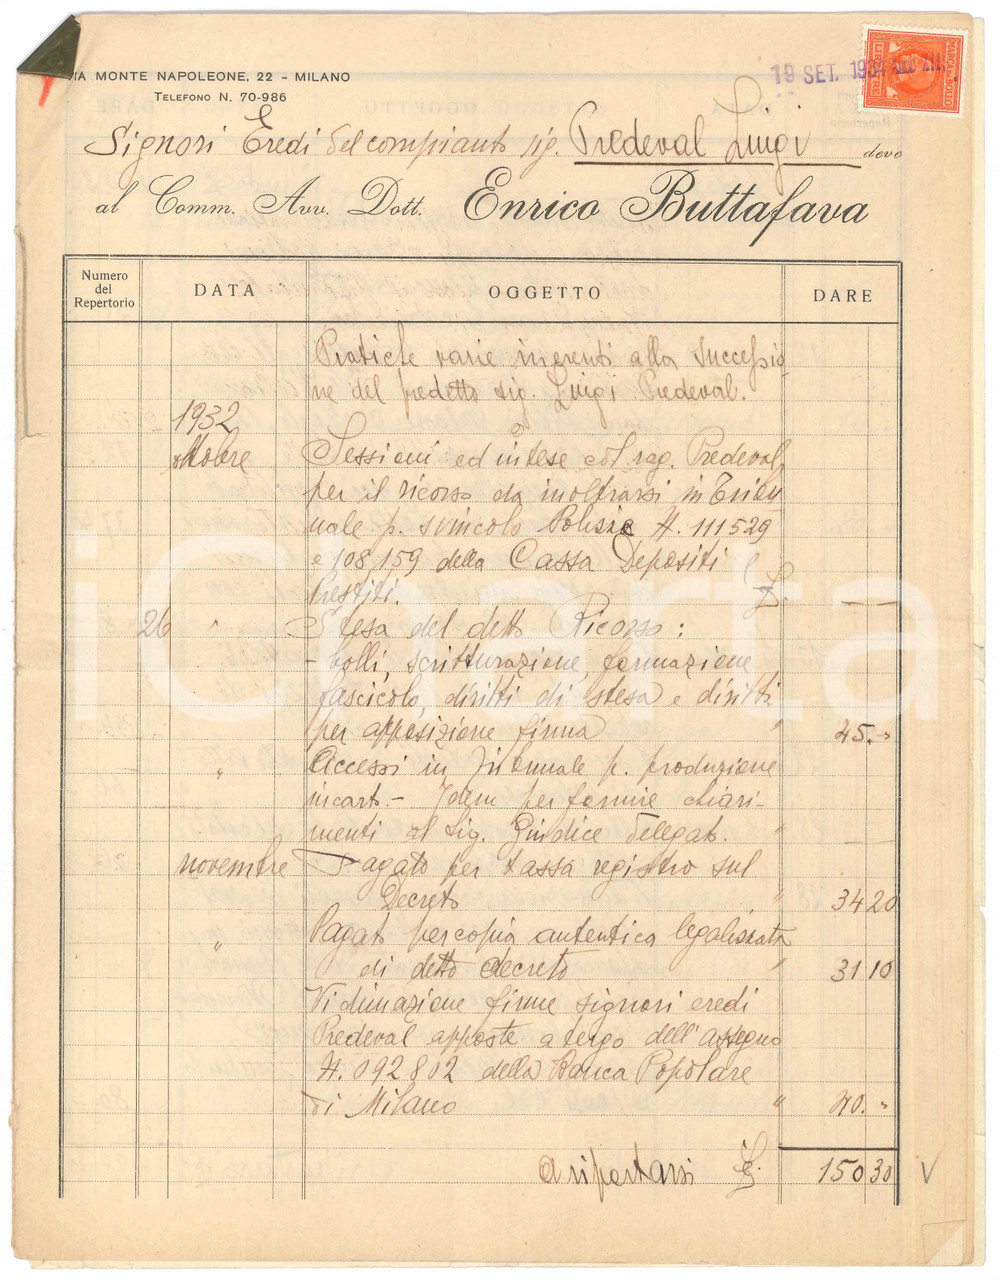 VIA MONTE NAPOLEONE, 22 - MILANO
TELEFONO N. 70-986
19 SET. 1934
MARCA DA BOLLO
Signori Eredi del compianto sig. Predeval Luigi deve
al Comm. Avv. Dott. Enrico Buttafava
Numero del Repertorio DATA OGGETTO DARE
Pratiche varie inerenti alla Successio-
ne del predetto sig. Luigi Predeval.
1932
ottobre Sessioni ed intese col rag. Predeval,
per il ricorso da inoltrarsi in Tribu
nale p. svincolo Polizie N. 111529
e 108,159 della Cassa Depositi e
Prestiti. L. —
26 " Stesa del detto Ricorso:
- bolli, scritturazione, formazione
fascicolo, diritti di stesa e diritti
per apposizione firma " 45.-
" Accessi in Tribunale p. produzione
incarto.- Idem per fornire chiari-
menti al Sig. Giudice Delegato. " —
novembre Pagato per tassa registro sul
Decreto " 34 20
" Pagato per copia autentica legalizzata
di detto decreto " 31 10
Vidimazione firme signori eredi
Predeval apposte a tergo dell'assegno
N. 092802 della Banca Popolare
di Milano " 40.-
a riportarsi L. 150 30 V
iCarta